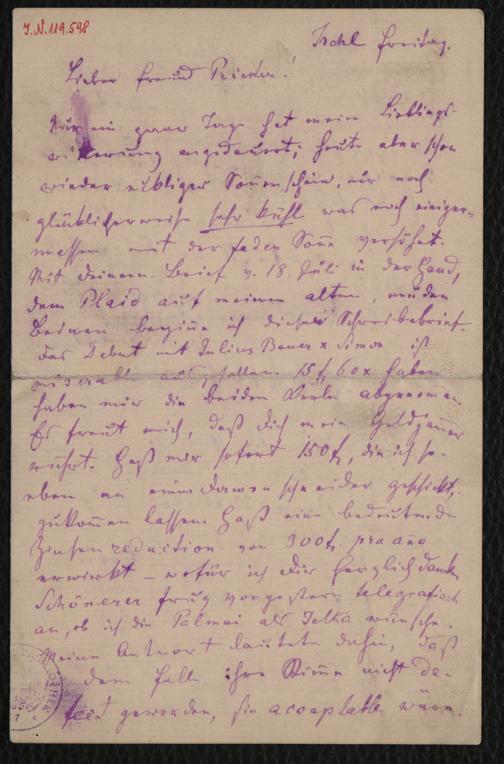 I.N. 119.598
Ischl Freitag.
Lieber Freund Priester!
Nur ein paar Tage hat meine Lieblings-
witterung angedauert; heute aber schon
wieder ekliger Sonnenschein, nur noch
glücklicherweise sehr kühl was noch einiger-
massen mit der faden Sonne versöhnt.
Mit Deinem Brief v. 18. Juli in der Hand,
dem Plaid auf meinen alten, müden
Beinen beginne ich diesen Schreibebrief.
Das Debut mit Julius Bauer & Simon ist
miserabel ausgefallen. 15 f 60 x haben
haben mir die beiden Kerle abgenommen.
Es freut mich, daß Dich mein Geldjammer
rührt. Hast mir sofort 150 f, die ich so-
eben an einen Damenschneider geschickt,
zukommen lassen. Hast eine bedeutende
Zinsenreduction von 300 f. pro año
erwirkt – wofür ich Dir herzlich danke.
Schönerer frug vorgestern telegrafisch
an, ob ich die Palmai als Jelka wünsche.
Meine Antwort lautete dahin, daß
dem Fall ihre Stimme nicht de-
fect geworden, sie acceptable wäre.